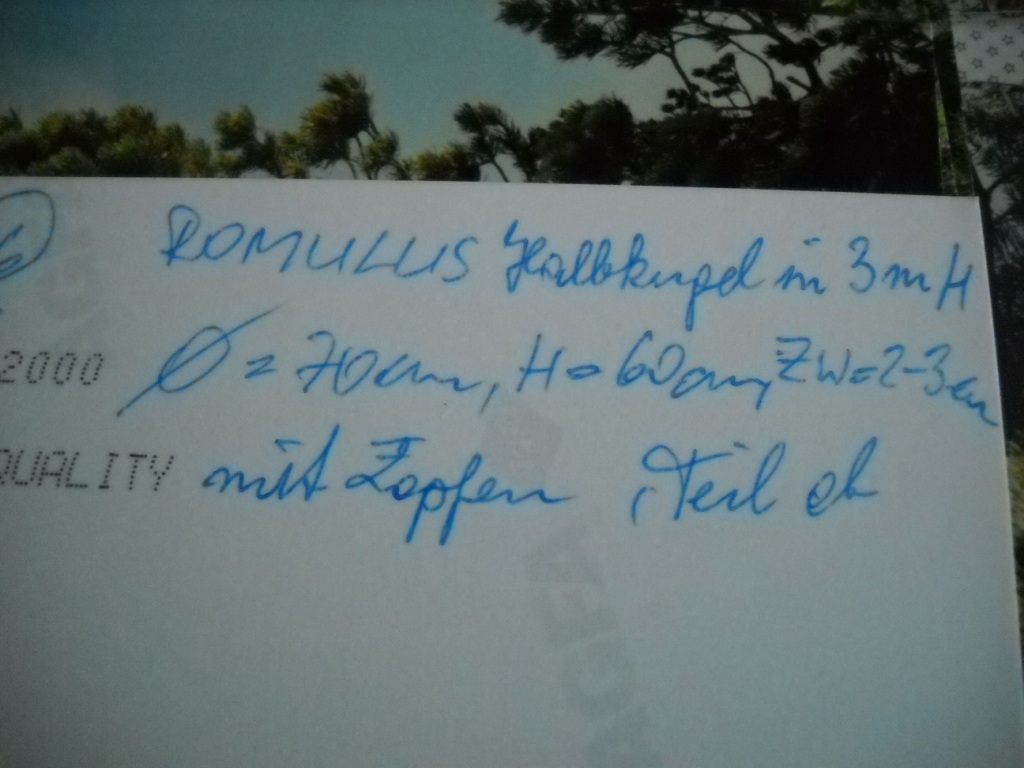 6 ROMULUS Halbkugel in 3 m H
2000 Ø = 70 cm, H = 60 cm, ZW = 2-3 cm
QUALITY mit Zapfen, Teil ob
AGFA